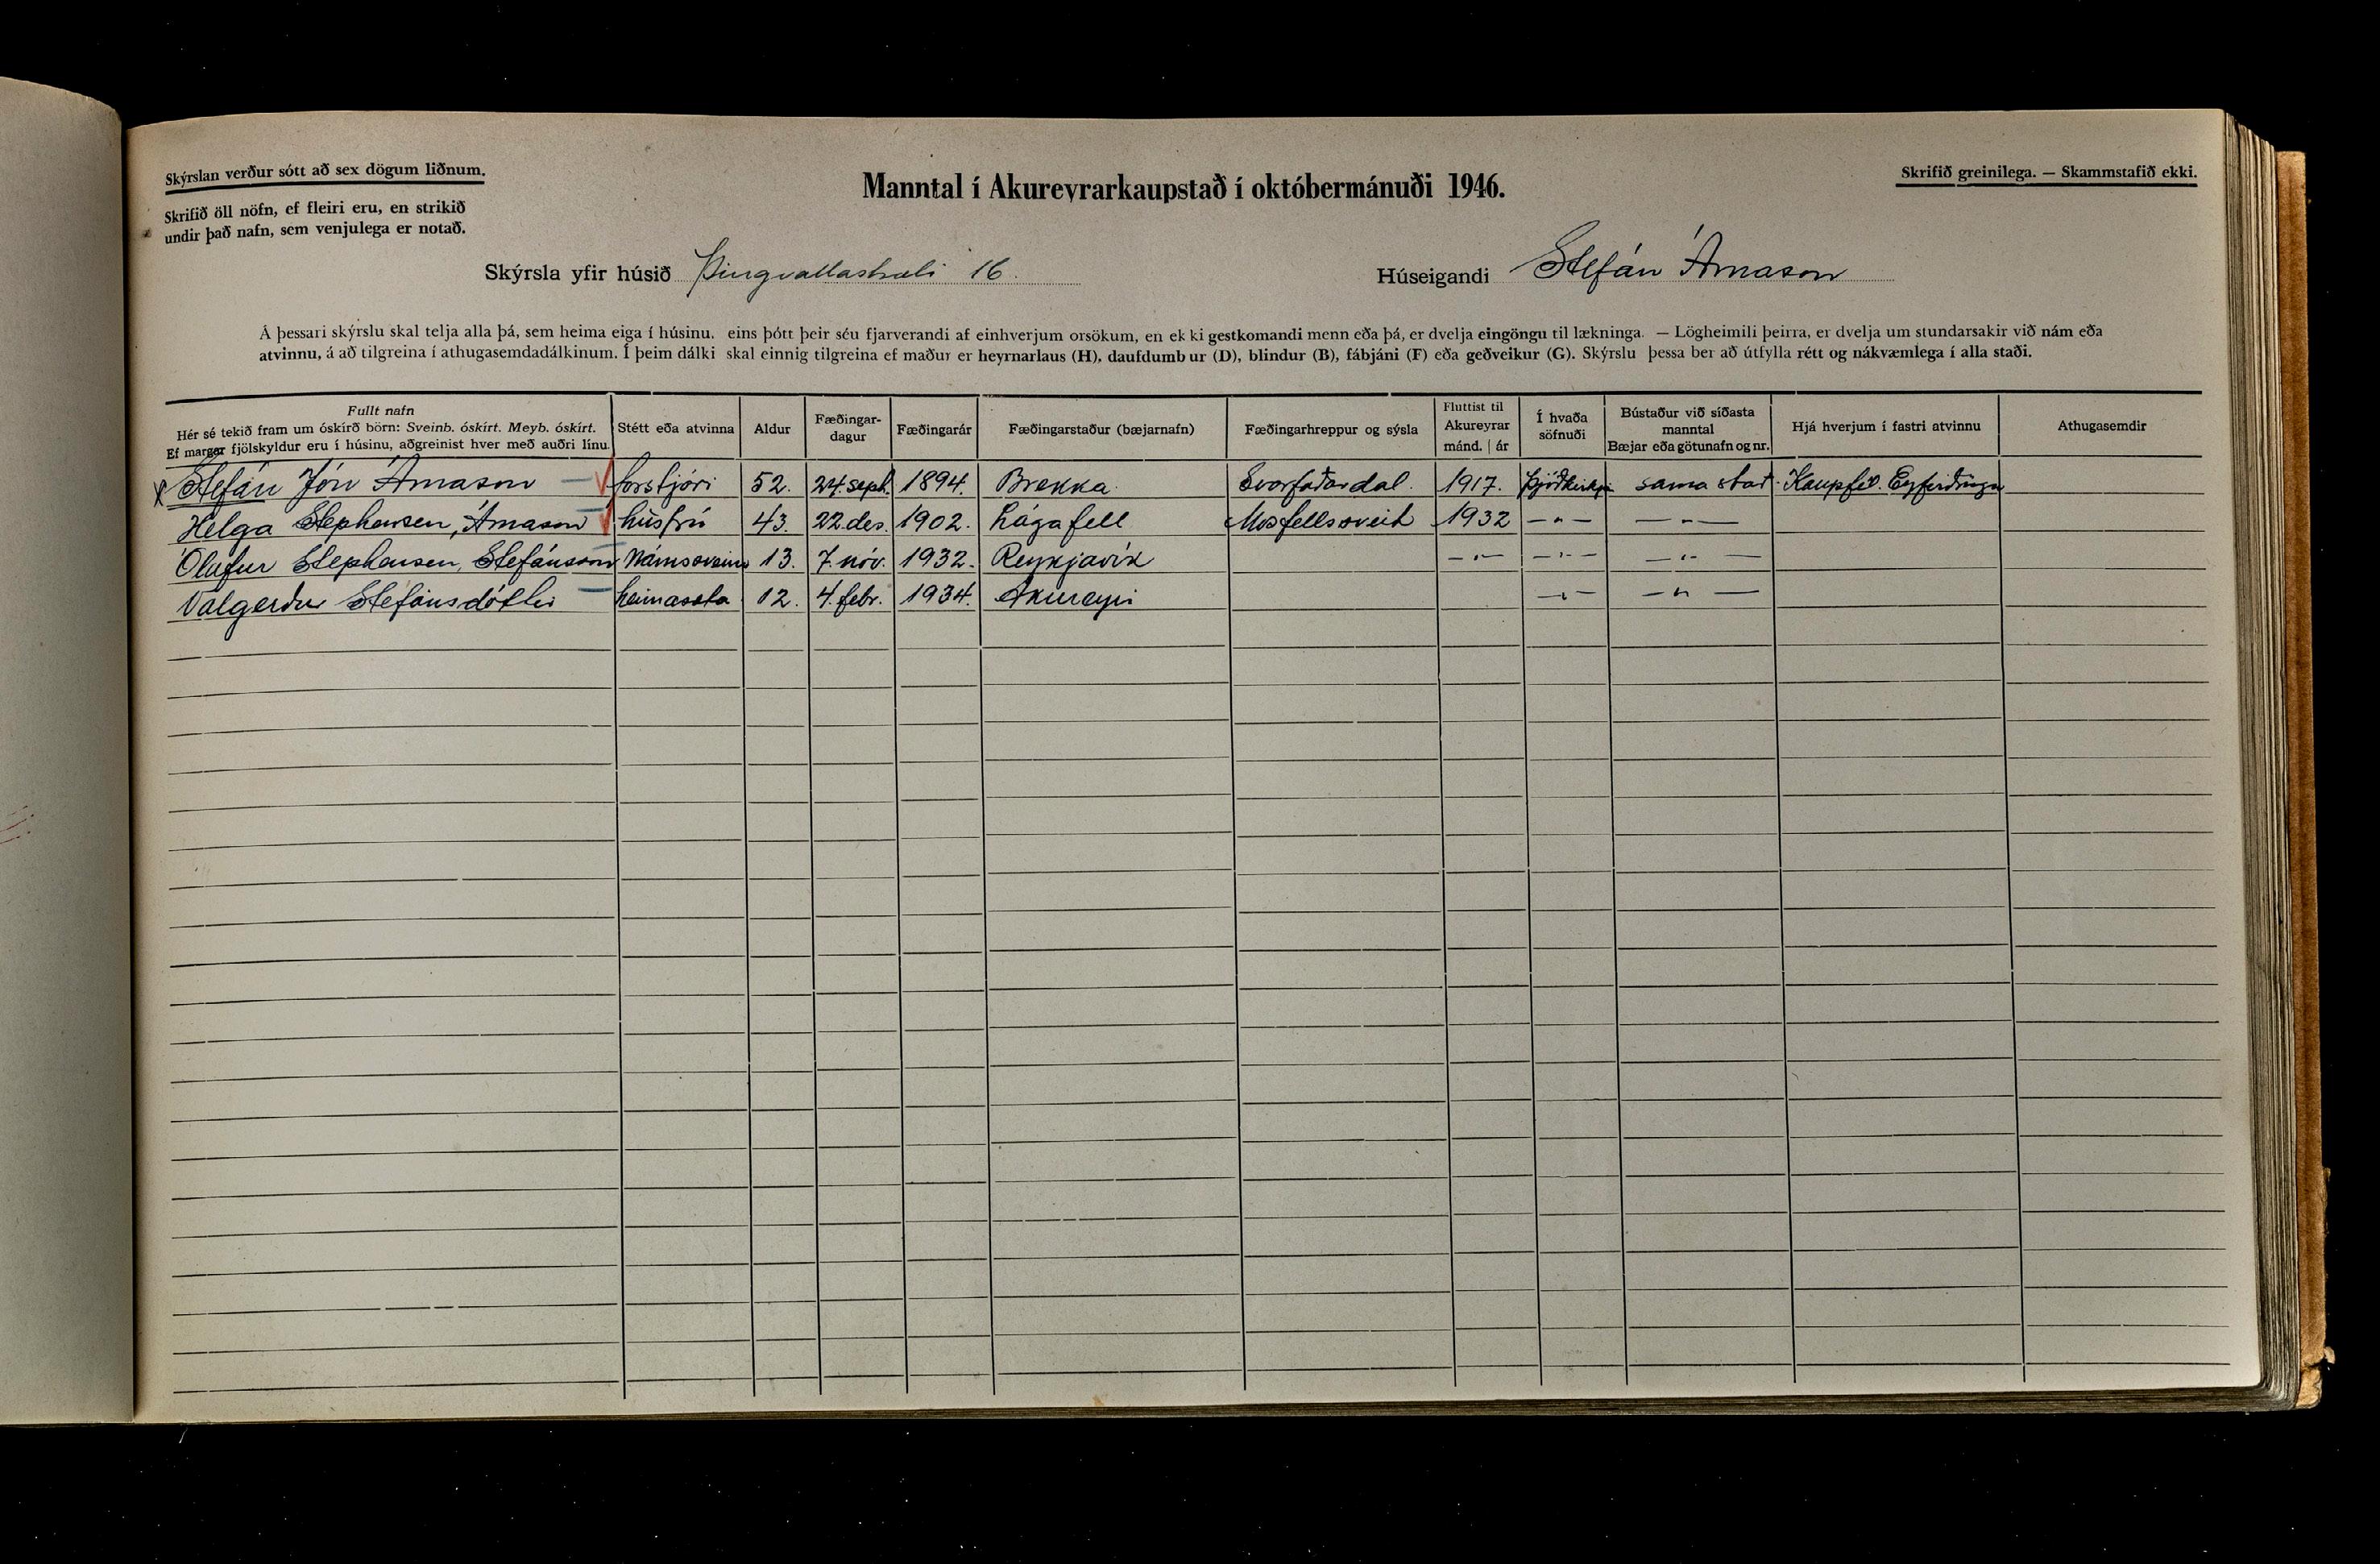 Skýrslan verður sótt að sex dögum liðnum.
Skrifið öll nöfn, ef fleiri eru, en strikið
undir það nafn, sem venjulega er notað.
Manntal í Akureyrarkaupstað í októbermánuði 1946.
Skrifið greinilega. — Skammstafið ekki.
Skýrsla yfir húsið Þingvallastræti 16.
Húseigandi Stefán Árnason
Á þessari skýrslu skal telja alla þá, sem heima eiga í húsinu, eins þótt þeir séu fjarverandi af einhverjum orsökum, en ekki gestkomandi menn eða þá, er dvelja eingöngu til lækninga. — Lögheimili þeirra, er dvelja um stundarsakir við nám eða
atvinnu, á að tilgreina í athugasemdadálkinum. Í þeim dálki skal einnig tilgreina ef maður er heyrnarlaus (H), daufdumbur (D), blindur (B), fábjáni (F) eða geðveikur (G). Skýrslu þessa ber að útfylla rétt og nákvæmlega í alla staði.
Fullt nafn
Hér sé tekið fram um óskírð börn: Sveinb. óskírt. Meyb. óskírt.
Ef margar fjölskyldur eru í húsinu, aðgreinist hver með auðri línu.
Stétt eða atvinna
Aldur
Fæðingar-
dagur
Fæðingarár
Fæðingarstaður (bæjarnafn)
Fæðingarhreppur og sýsla
Fluttist til
Akureyrar
mánd. | ár
Í hvaða
söfnuði
Bústaður við síðasta
manntal
Bæjar eða götunafn og nr.
Hjá hverjum í fastri atvinnu
Athugasemdir
x Stefán Jón Árnason forstjóri 52. 24. sept. 1894. Brekka Svarfaðardal. 1917. Þjóðkirkju sama stað. Kaupfél. Eyfirðinga
Helga Stephensen, Árnason húsfrú 43. 22. des. 1902. Lágafell Mosfellssveit 1932 — " — — " —
Ólafur Stephensen, Stefánsson Námssveinn 13. 7. nóv. 1932. Reykjavík — " — — " — — " —
Valgerður Stefánsdóttir heimasæta 12. 4. febr. 1934. Akureyri — " — — " —